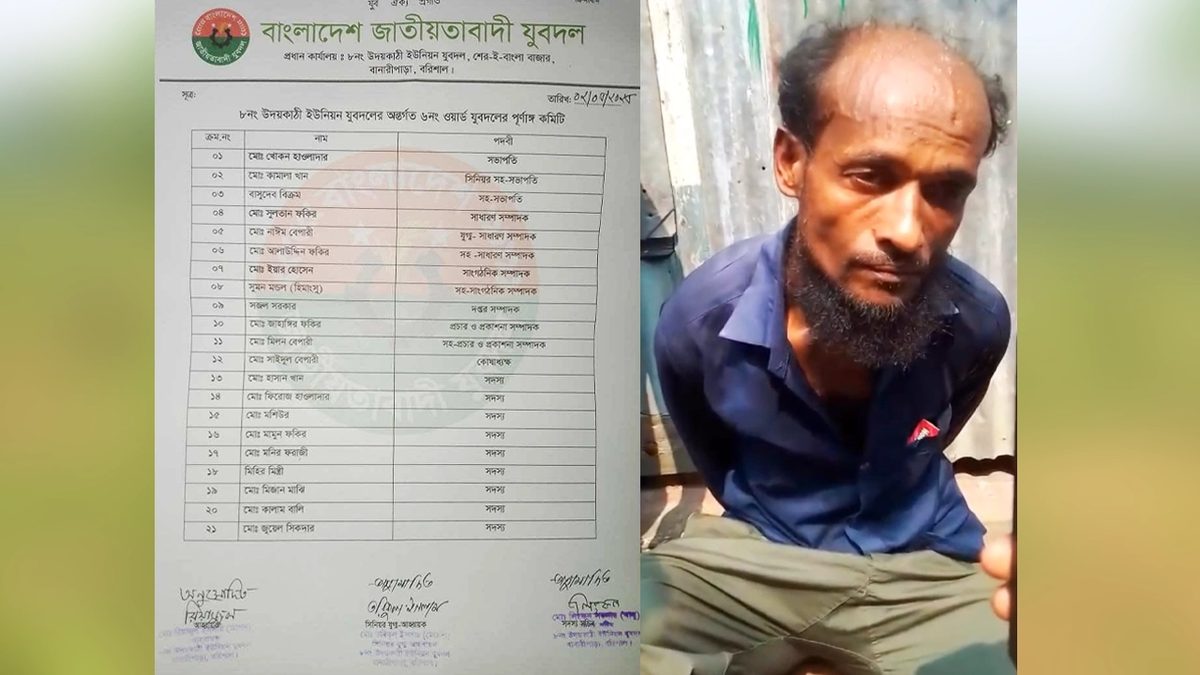 যুব ঐক্য প্রগতি
বাংলাদেশ জাতীয়তাবাদী যুবদল
প্রধান কার্যালয় ঃ ৮নং উদয়কাঠী ইউনিয়ন যুবদল, শের-ই-বাংলা বাজার,
বানারীপাড়া, বরিশাল।
সূত্র:
তারিখ:
৮নং উদয়কাঠী ইউনিয়ন যুবদলের অন্তর্গত ৬নং ওয়ার্ড যুবদলের পূর্ণাঙ্গ কমিটি
ক্রম.নং নাম পদবী
০১ মোঃ খোকন হাওলাদার সভাপতি
০২ মোঃ কামাল খান সিনিয়র সহ-সভাপতি
০৩ বাসুদেব বিক্রম সহ-সভাপতি
০৪ মোঃ সুলতান ফকির সাধারণ সম্পাদক
০৫ মোঃ নাঈম বেপারী যুগ্ম- সাধারণ সম্পাদক
০৬ মোঃ আলাউদ্দিন ফকির সহ -সাধারণ সম্পাদক
০৭ মোঃ ইয়ার হোসেন সাংগঠনিক সম্পাদক
০৮ সুমন মন্ডল (হিমাংসু) সহ-সাংগঠনিক সম্পাদক
০৯ সজল সরকার দপ্তর সম্পাদক
১০ মোঃ জাহাঙ্গির ফকির প্রচার ও প্রকাশনা সম্পাদক
১১ মোঃ মিলন বেপারী সহ-প্রচার ও প্রকাশনা সম্পাদক
১২ মোঃ সাইদুল বেপারী কোষাধ্যক্ষ
১৩ মোঃ হাসান খান সদস্য
১৪ মোঃ ফিরোজ হাওলাদার সদস্য
১৫ মোঃ মশিউর সদস্য
১৬ মোঃ মামুন ফকির সদস্য
১৭ মোঃ মনির ফরাজী সদস্য
১৮ মিহির মিস্ত্রী সদস্য
১৯ মোঃ মিজান মাঝি সদস্য
২০ মোঃ কালাম বালি সদস্য
২১ মোঃ জুয়েল সিকদার সদস্য
অনুমোদিত
আহ্বায়ক
সিনিয়র যুগ্ম-আহ্বায়ক
সদস্য সচিব
৮নং উদয়কাঠী ইউনিয়ন যুবদল
বানারীপাড়া, বরিশাল।